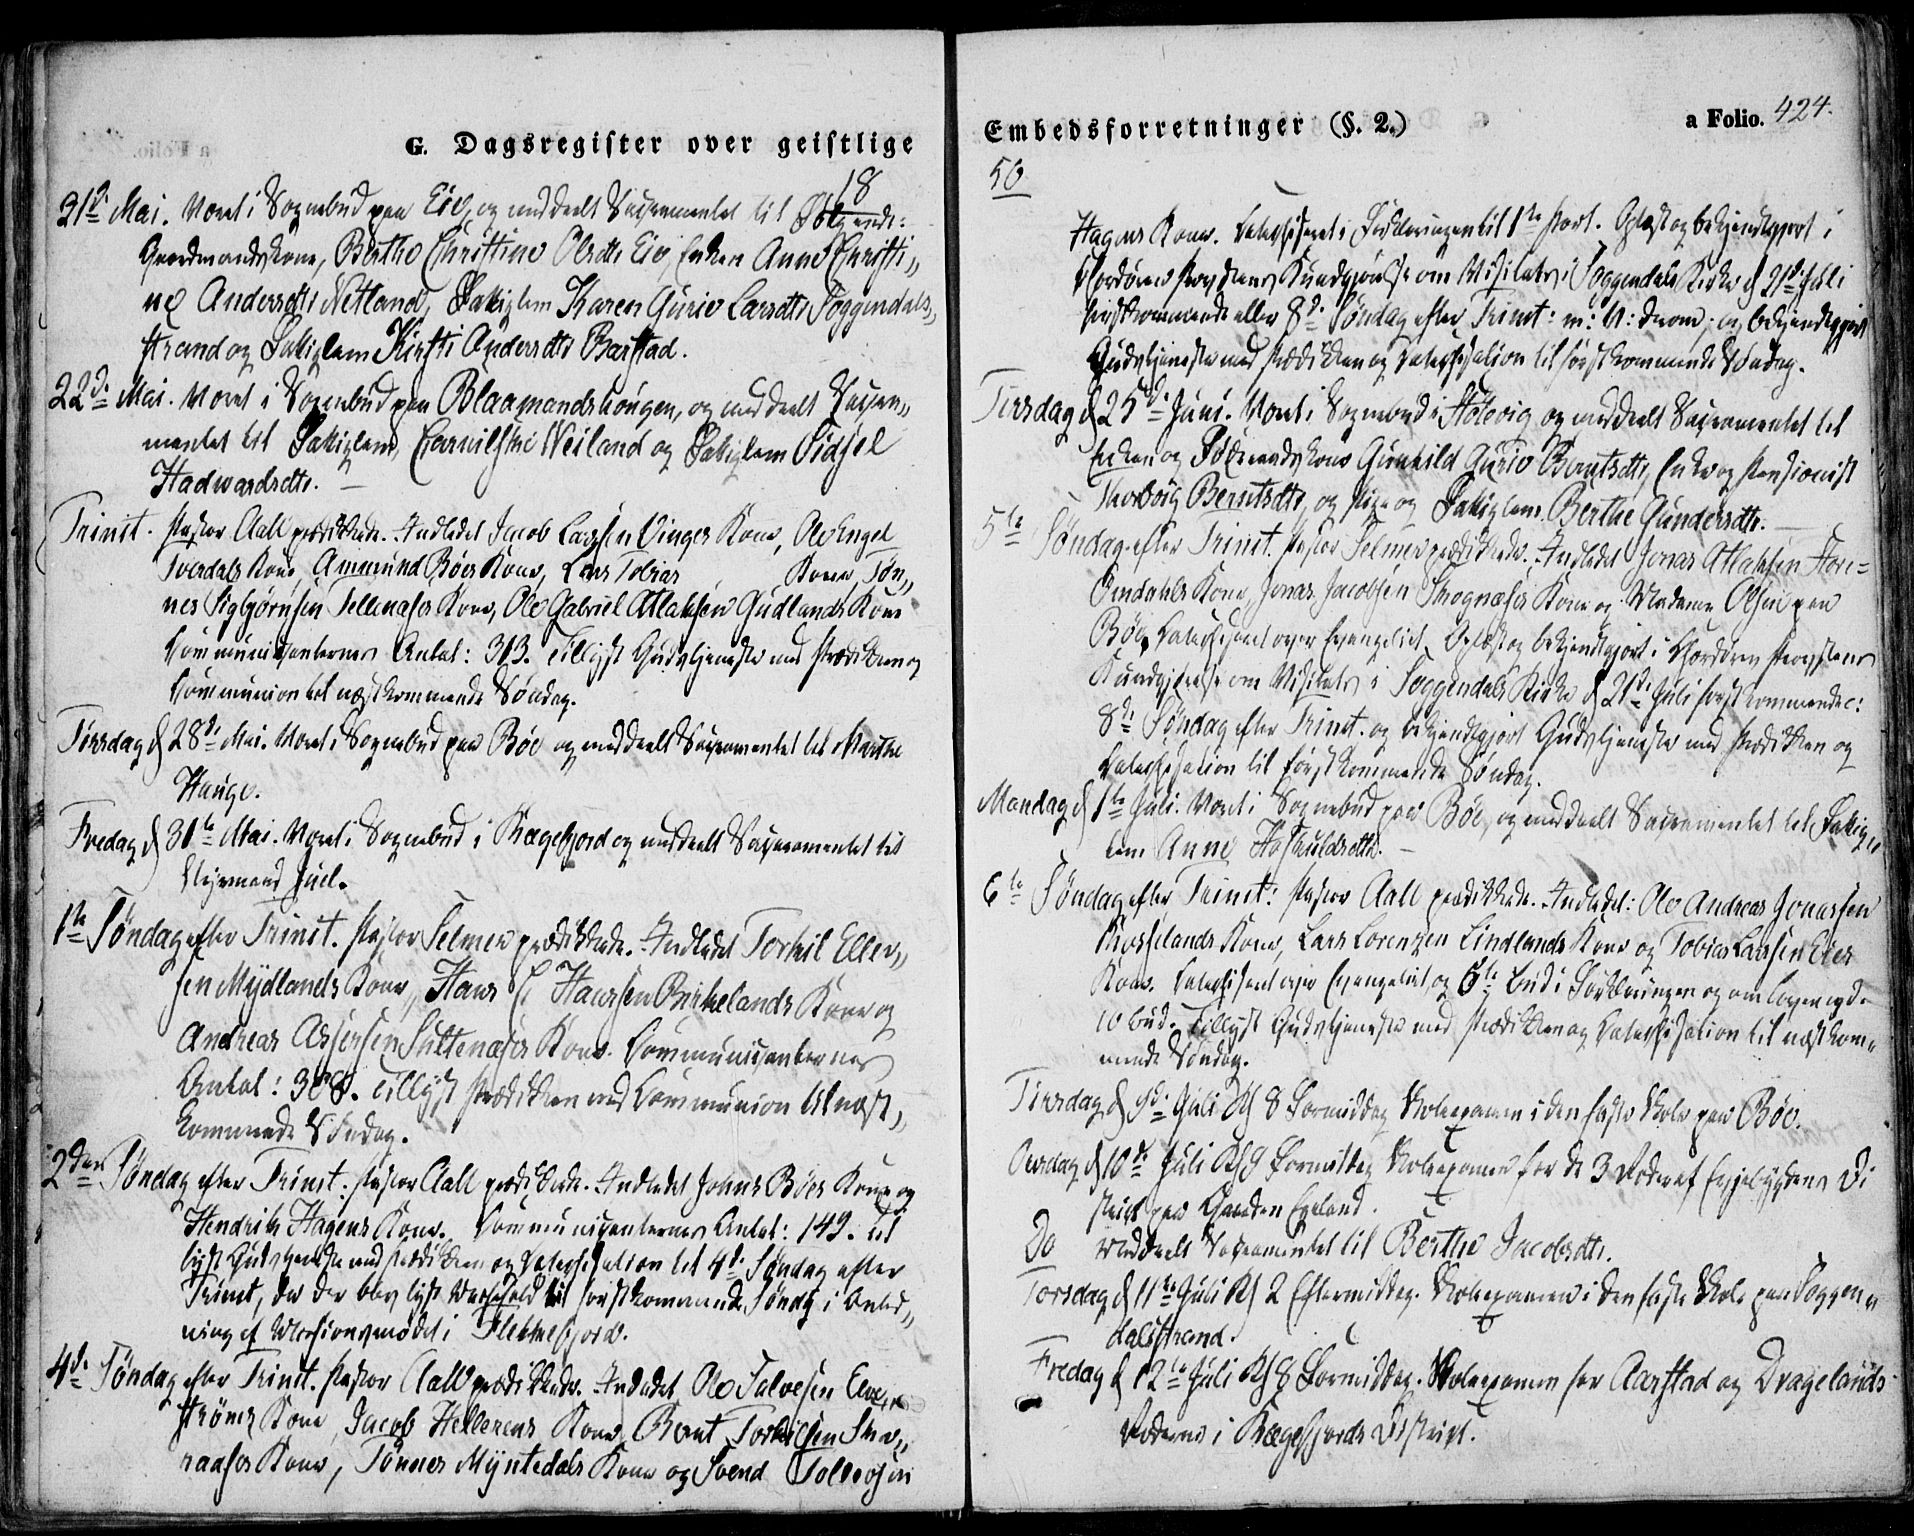 G. Dagsregister over geistlige
18
21de Mai. Været i Sognebud paa Eie, og meddeelt Sacramentet til
Gaardmandskone, Berthe Christine Olsdtr Eie, Enken Anne Christi„
ne Andersdtr Netland, Fattiglem Karen Gurie Larsdtr Soggendals„
strand og Fattiglem Kirsti Andersdtr Barstad.
22de Mai. Været i Sognebud paa Blaamandshougen, og meddeelt Sacra„
mentet til Fattiglem Weiland og Fattiglem Sidsel
Hadvardsdtr.
Trinit. Pastor Aall prædikkede. Indledet Jacob Larsen Vinges Kone, Ole Engel
Tverdals Kone, Ammund Bøes Kone, Lars Tobias Kone, Tøn„
nes Sigbjørnsen Tellnæses Kone, Ole Gabriel Atlaksen Gudlands Kone
Communicanternes Antal: 313. Tillyst Gudstjeneste med Prædikken og
Communion til næstkommende Søndag.
Tirsdag d 28de Mai. Været i Sognebud paa Bøe og meddeelt Sacramentet til Marthe
Hauge.
Fredag d 31te Mai. Været i Sognebud i Rægefjord og meddeelt Sacramentet til
Styrmand Juel.
1te Søndag efter Trinit. Pastor Selmer prædikkede. Indledet Torkil Eller„
sen Mydlands Kone, Hans C Hansen Birkelands Kone og
Andreas Assersen Suttenæses Kone. Communicanternes
Antal: 308. Tillyst Prædikken med Communion til næst„
kommende Søndag.
2den Søndag efter Trinit: Pastor Aall prædikkede. Indledet Johns Bøes Kone og
Hendrik Hagens Kone. Communicanternes Antal: 149. Til
lyst Gudstjeneste med Prædikken og Catechisation til 4de Søndag efter
Trinit, da der blev lyst Messefald til førstkommende Søndg i Anled„
ning af Missionsmødet i Flekkefjord.
4de Søndag efter Trinit. Pastor Aall prædikkede. Indledet Ole Salvesen Elve„
strøms Kone, Jacob Hellerens Kone, Bernt Torkilsen Sva„
naases Kone, Tønnes Myntedals Kone og Svend Tollevsen
Embedsforretninger (§. 2.)
a Folio. 424.
50
Hagens Kone. Catechiseret i Forklaringen til 1ste Part. Oplæst og bekjendtgjort i
Chordøren Provstens Kundgjørelse om Visitats i Soggendals Kirke d 21de Juli
førstkommende eller 8de Søndag efter Trinit: og bekjendtgjort
Gudstjeneste med Prædikken og Catechisation til førstkommende Søndag.
Tirsdag d 25de Juni. Været i Sognebud i Stølevig og meddeelt Sacramentet til
Enken og Føderaadskone Gunhild Gurie Berntsdtr, Enke og Pensionist
Thorborg Berntsdtr, og Pige og Fattiglem Berthe Gundersdtr.
5te Søndag efter Trinit. Pastor Selmer prædikkede. Indledet Jonas Atlaksen Store=
Omdahls Kone, Jonas Jacobsen Skognæses Kone og Madame Olsen paa
Bøe. Catechiseret over Evangeliet. Oplæst og bekjendtgjort i Chordøren Provstens
Kundgjørelse om Visitats i Soggendals Kirke d 21de Juli førstkommende:
8de Søndag efter Trinit. og bekjendtgjort Gudstjeneste med Prædikken og
Catechisation til førstkommende Søndag.
Mandag d 1te Juli. Været i Sognebud paa Bøe, og meddeelt Sacramentet til Fattig„
lem Anne Hoskuldsdtr.
6te Søndag efter Trinit: Pastor Aall prædikkede. Indledet: Ole Andreas Jonassen
Rosselands Kone, Lars Lorenzen Lindlands Kone og Tobias Larsen Eies
Kone. Catechiseret over Evangeliet, og 6te Bud i Forklaringen og om Loven og de
10 Bud. Tillyst Gudstjeneste med Prædikken og Catechisation til næstkom„
mende Søndag.
Tirsdag d 9de Juli Kl 8 Formiddag Skoleexamen i den faste Skole paa Bøe.
Onsdag d 10de Juli Kl 9 Formiddag Skoleexamen for de 3 Roder af Eyjebygdens Di
strict paa Gaarden Eyeland.
Do meddeelt Sacramentet til Berthe Jacobsdtr.
Torsdag d 11te Juli Kl 2 Eftermiddag. Skoleexamen i den faste Skole paa Soggen„
dalsstrand.
Fredag d 12te Juli Kl 8 Formiddag. Skoleexamen for Aarstad og Dragelands
Roderne i Rægefjords District.